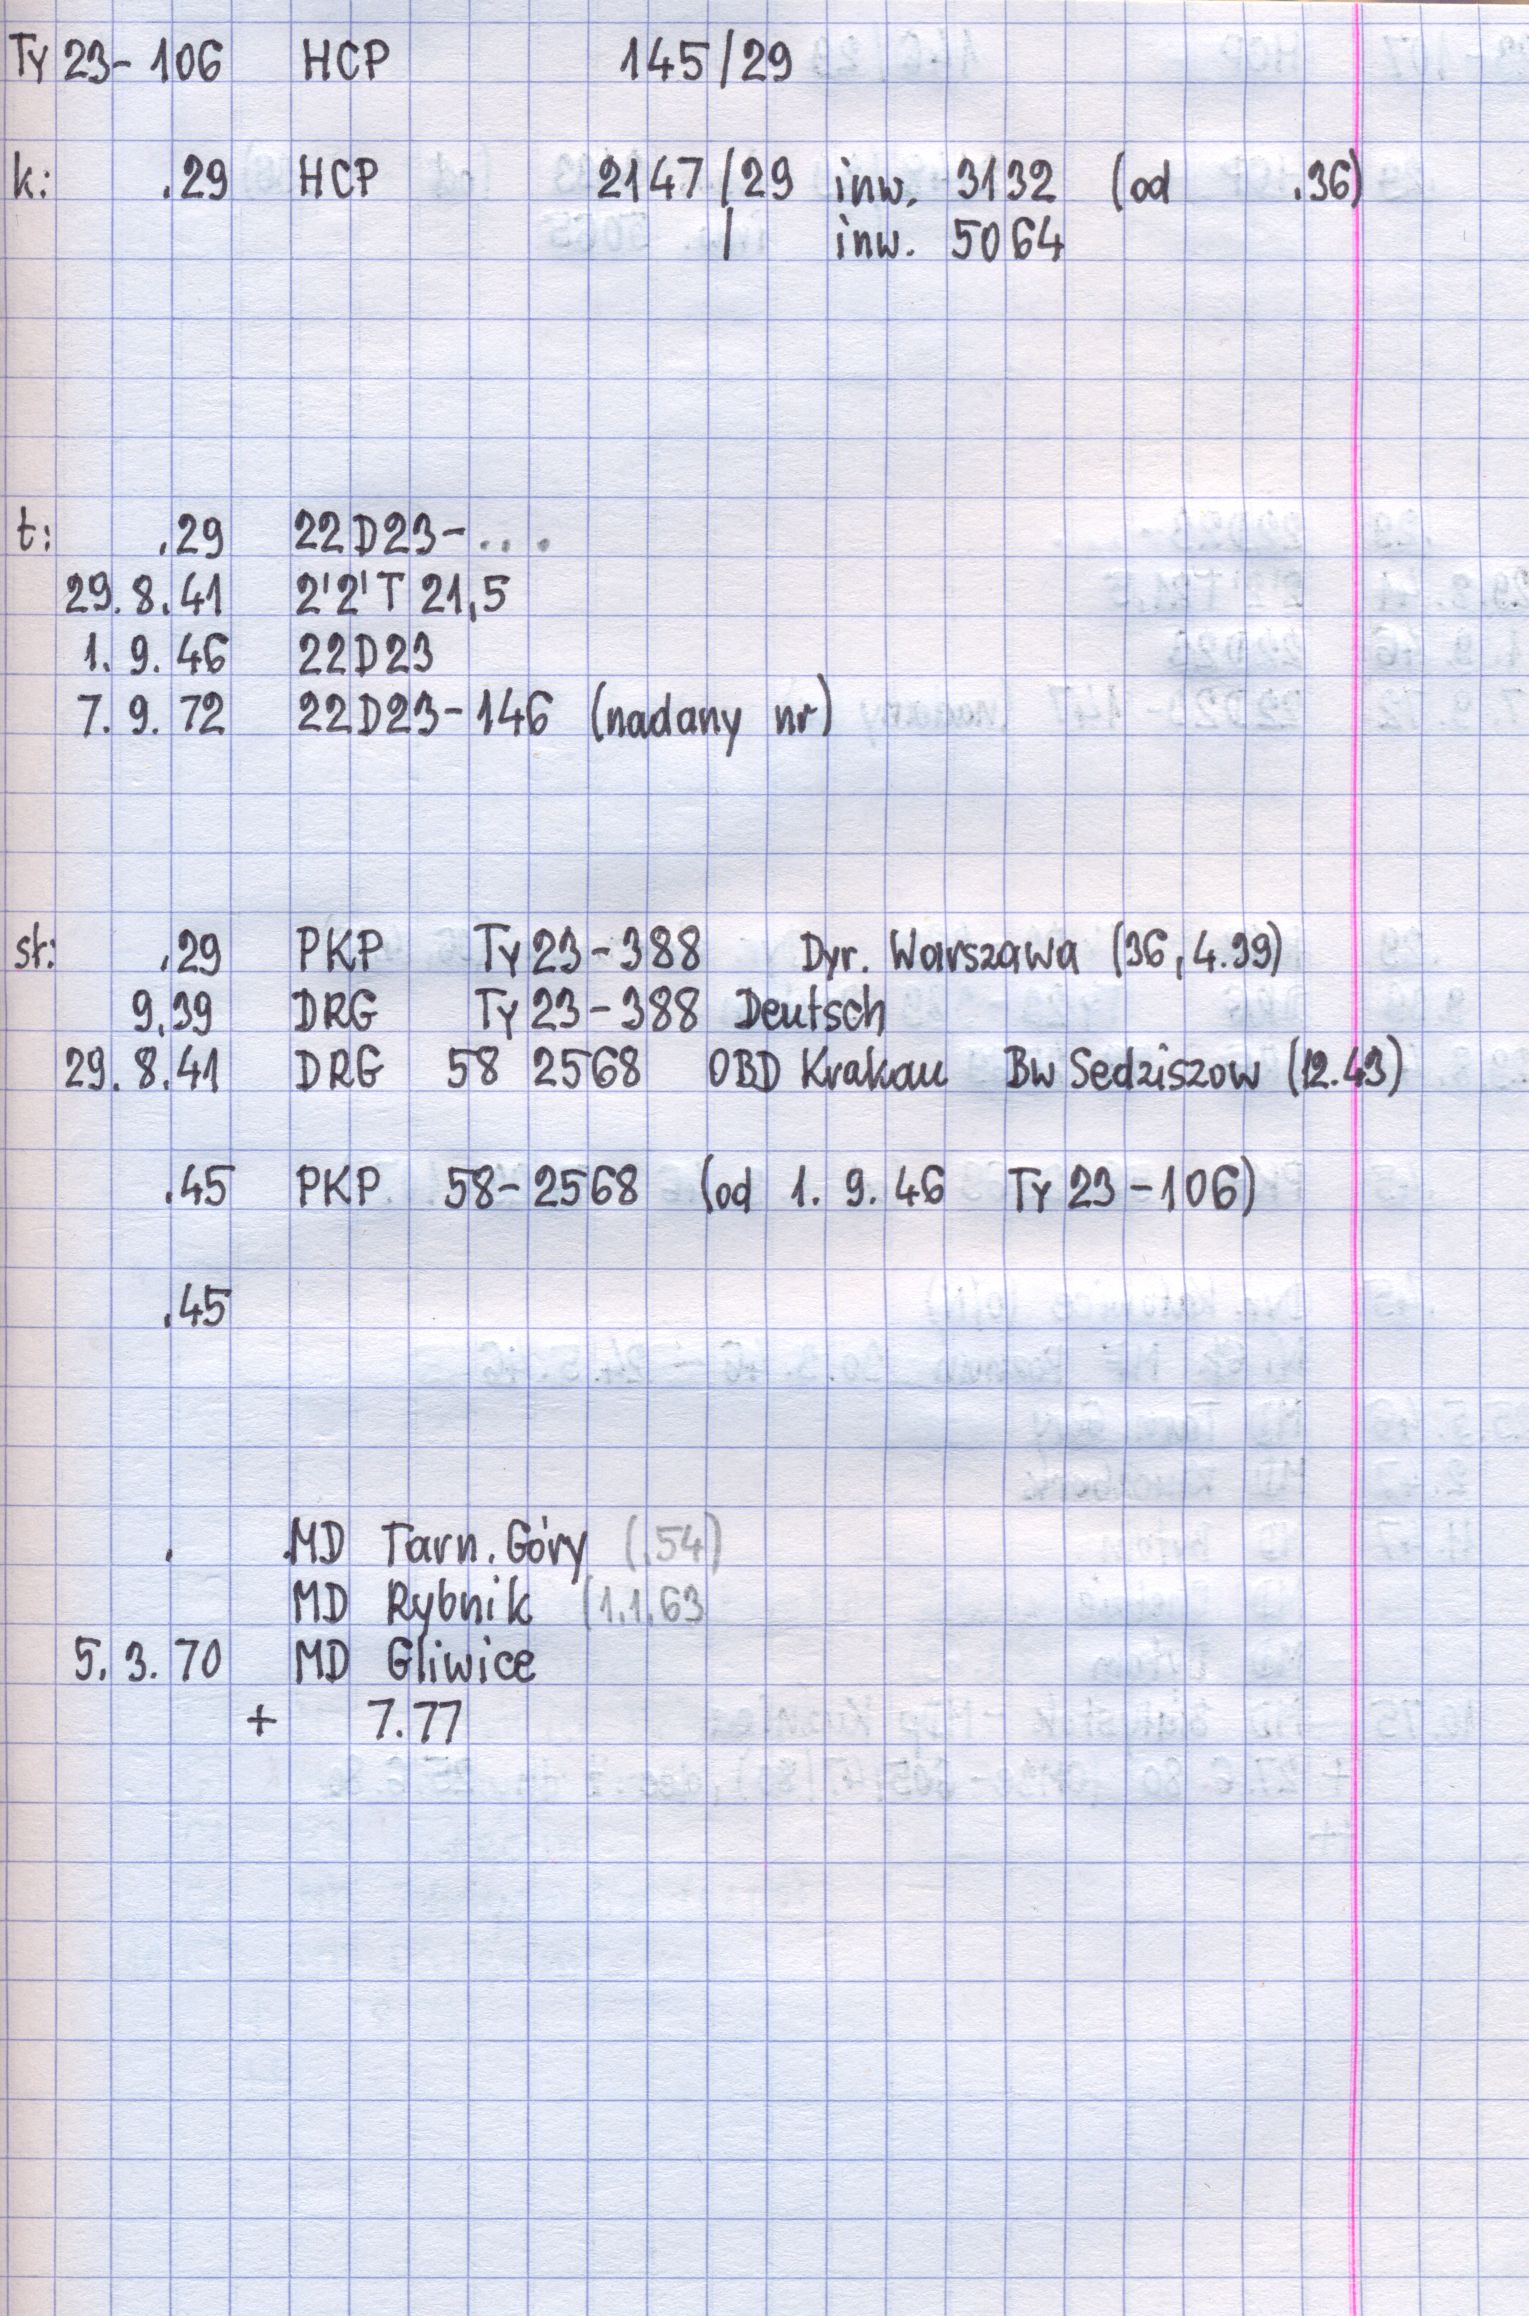 Ty 23-106 HCP 145/29
k: .29 HCP 2147/29 inw. 3132 (od .36)
/ inw. 5064
t: .29 22D23-...
29.8.41 2'2'T 21,5
1.9.46 22D23
7.9.72 22D23-146 (nadany nr)
sł: .29 PKP Ty23-388 Dyr. Warszawa (36, 4.39)
9.39 DRG Ty23-388 Deutsch
29.8.41 DRG 58 2568 OBD Krakau Bw Sedziszow (12.43)
.45 PKP 58-2568 (od 1.9.46 Ty23-106)
.45
. .MD Tarn. Góry (.54)
MD Rybnik (1.1.63
5.3.70 MD Gliwice
+ 7.77